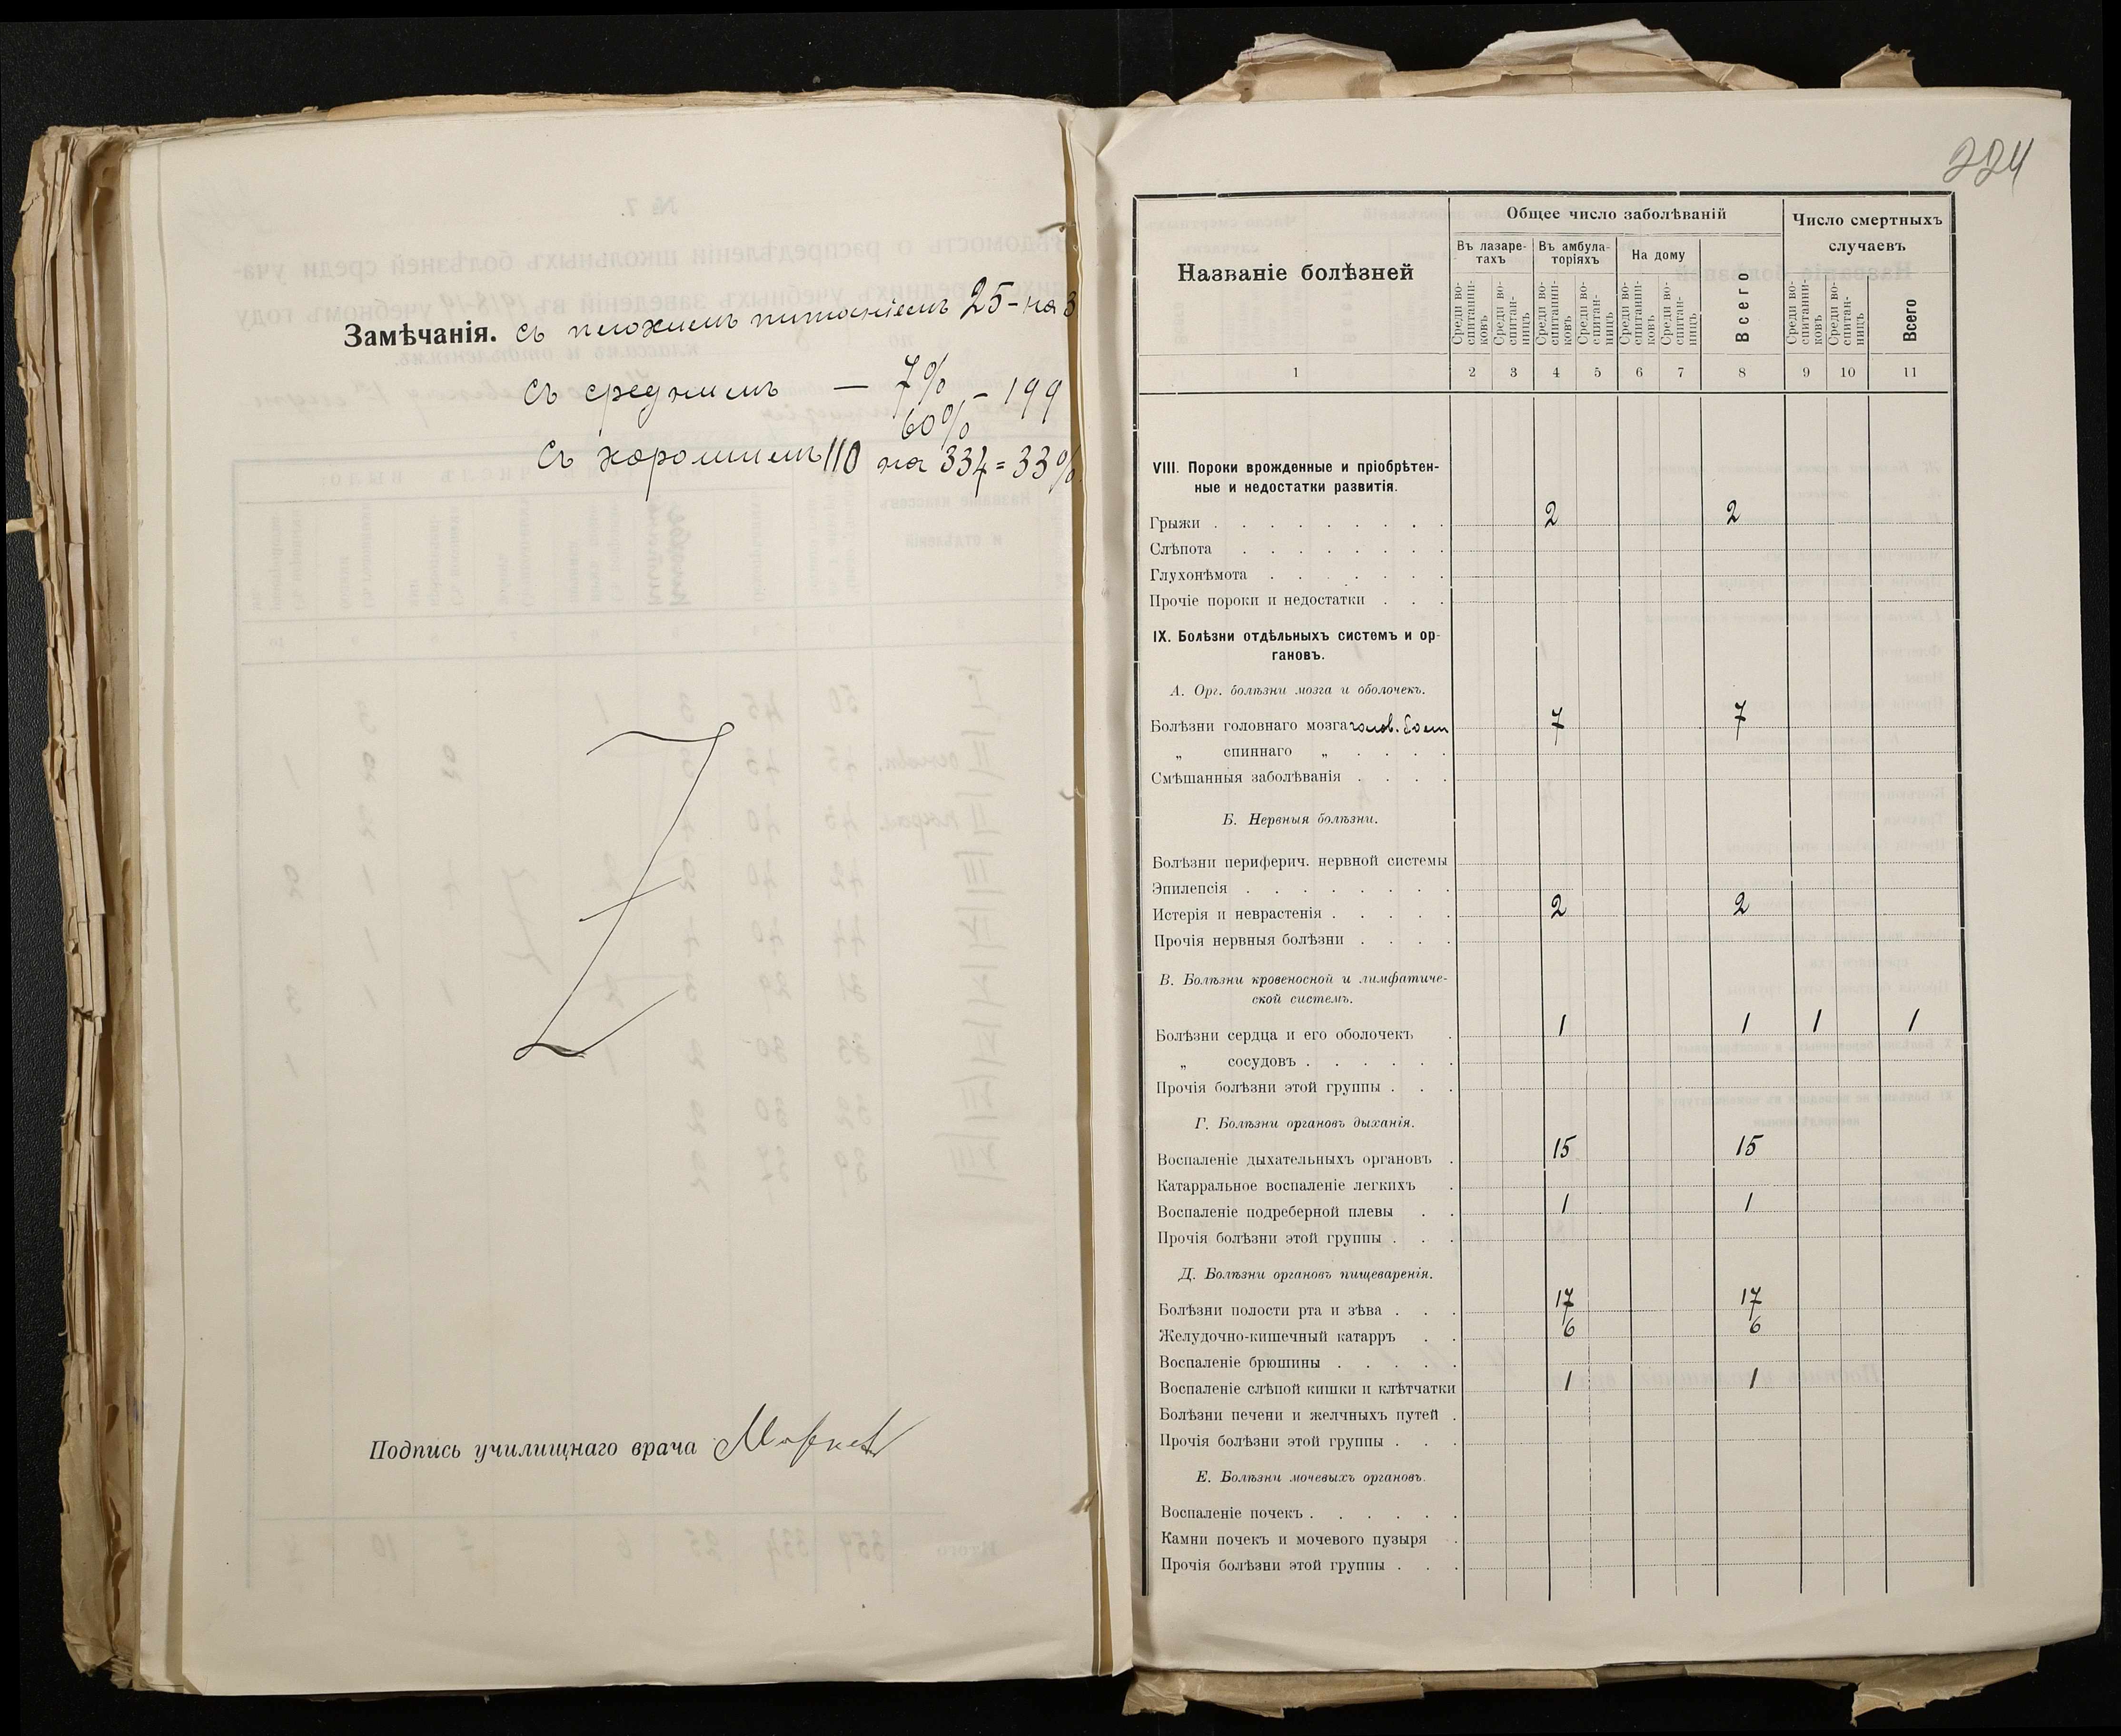 Замѣчанія. съ плохимъ питаніемъ 25 - на 3
7%
съ среднимъ — - 199
60%
съ хорошимъ 110 на 334 = 33%
Подпись училищнаго врача
224
Названіе болѣзней
Общее число заболѣваній
Число смертныхъ случаевъ
Въ лазаре-тахъ
Въ амбула-торіяхъ
На дому
Всего
Среди во-спитанни-ковъ
Среди во-спитан-ницъ
Среди во-спитанни-ковъ
Среди во-спитан-ницъ
Среди во-спитанни-ковъ
Среди во-спитан-ницъ
Среди во-спитанни-ковъ
Среди во-спитан-ницъ
Всего
1 2 3 4 5 6 7 8 9 10 11
VIII. Пороки врожденные и пріобрѣтен-
ные и недостатки развитія.
Грыжи . . . . . . . . . 2 2
Слѣпота . . . . . . . .
Глухонѣмота . . . . . . .
Прочіе пороки и недостатки . . .
IX. Болѣзни отдѣльныхъ системъ и ор-
гановъ.
А. Орг. болѣзни мозга и оболочекъ.
Болѣзни головнаго мозга голов. боли 7 7
„ спиннаго „ . . . .
Смѣшанныя заболѣванія . . . .
Б. Нервныя болѣзни.
Болѣзни периферич. нервной системы
Эпилепсія . . . . . . . .
Истерія и неврастенія . . . . . 2 2
Прочія нервныя болѣзни . . . .
В. Болѣзни кровеносной и лимфатиче-
ской системъ.
Болѣзни сердца и его оболочекъ . 1 1 1 1
„ сосудовъ . . . . . .
Прочія болѣзни этой группы . . .
Г. Болѣзни органовъ дыханія.
Воспаленіе дыхательныхъ органовъ . 15 15
Катарральное воспаленіе легкихъ .
Воспаленіе подреберной плевы . . 1 1
Прочія болѣзни этой группы . . .
Д. Болѣзни органовъ пищеваренія.
Болѣзни полости рта и зѣва . . . 17 17
Желудочно-кишечный катарръ . . 6 6
Воспаленіе брюшины . . . . .
Воспаленіе слѣпой кишки и клѣтчатки 1 1
Болѣзни печени и желчныхъ путей .
Прочія болѣзни этой группы . . .
Е. Болѣзни мочевыхъ органовъ.
Воспаленіе почекъ . . . . . .
Камни почекъ и мочевого пузыря .
Прочія болѣзни этой группы . . .